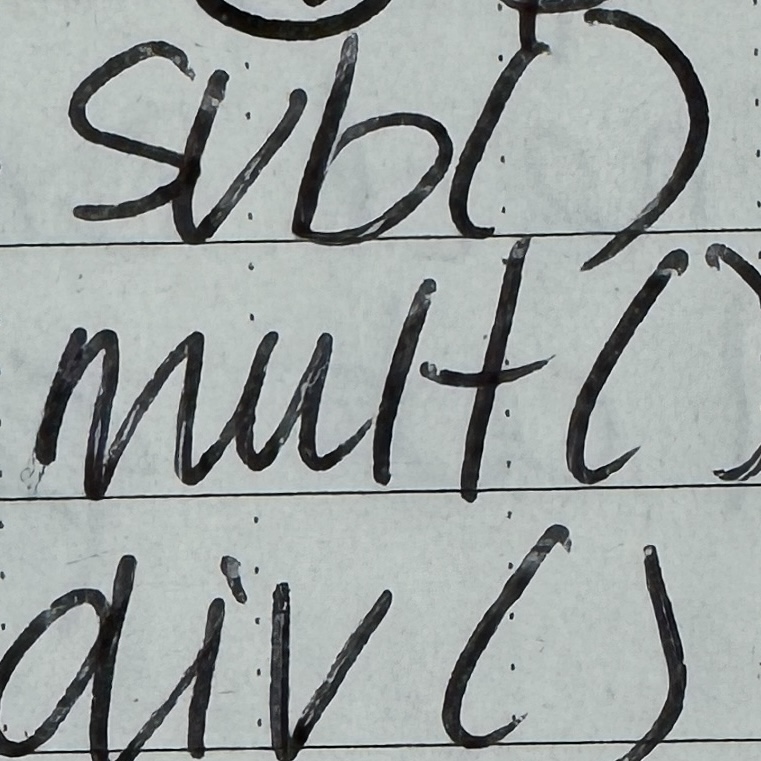 sub()
mult()
div()